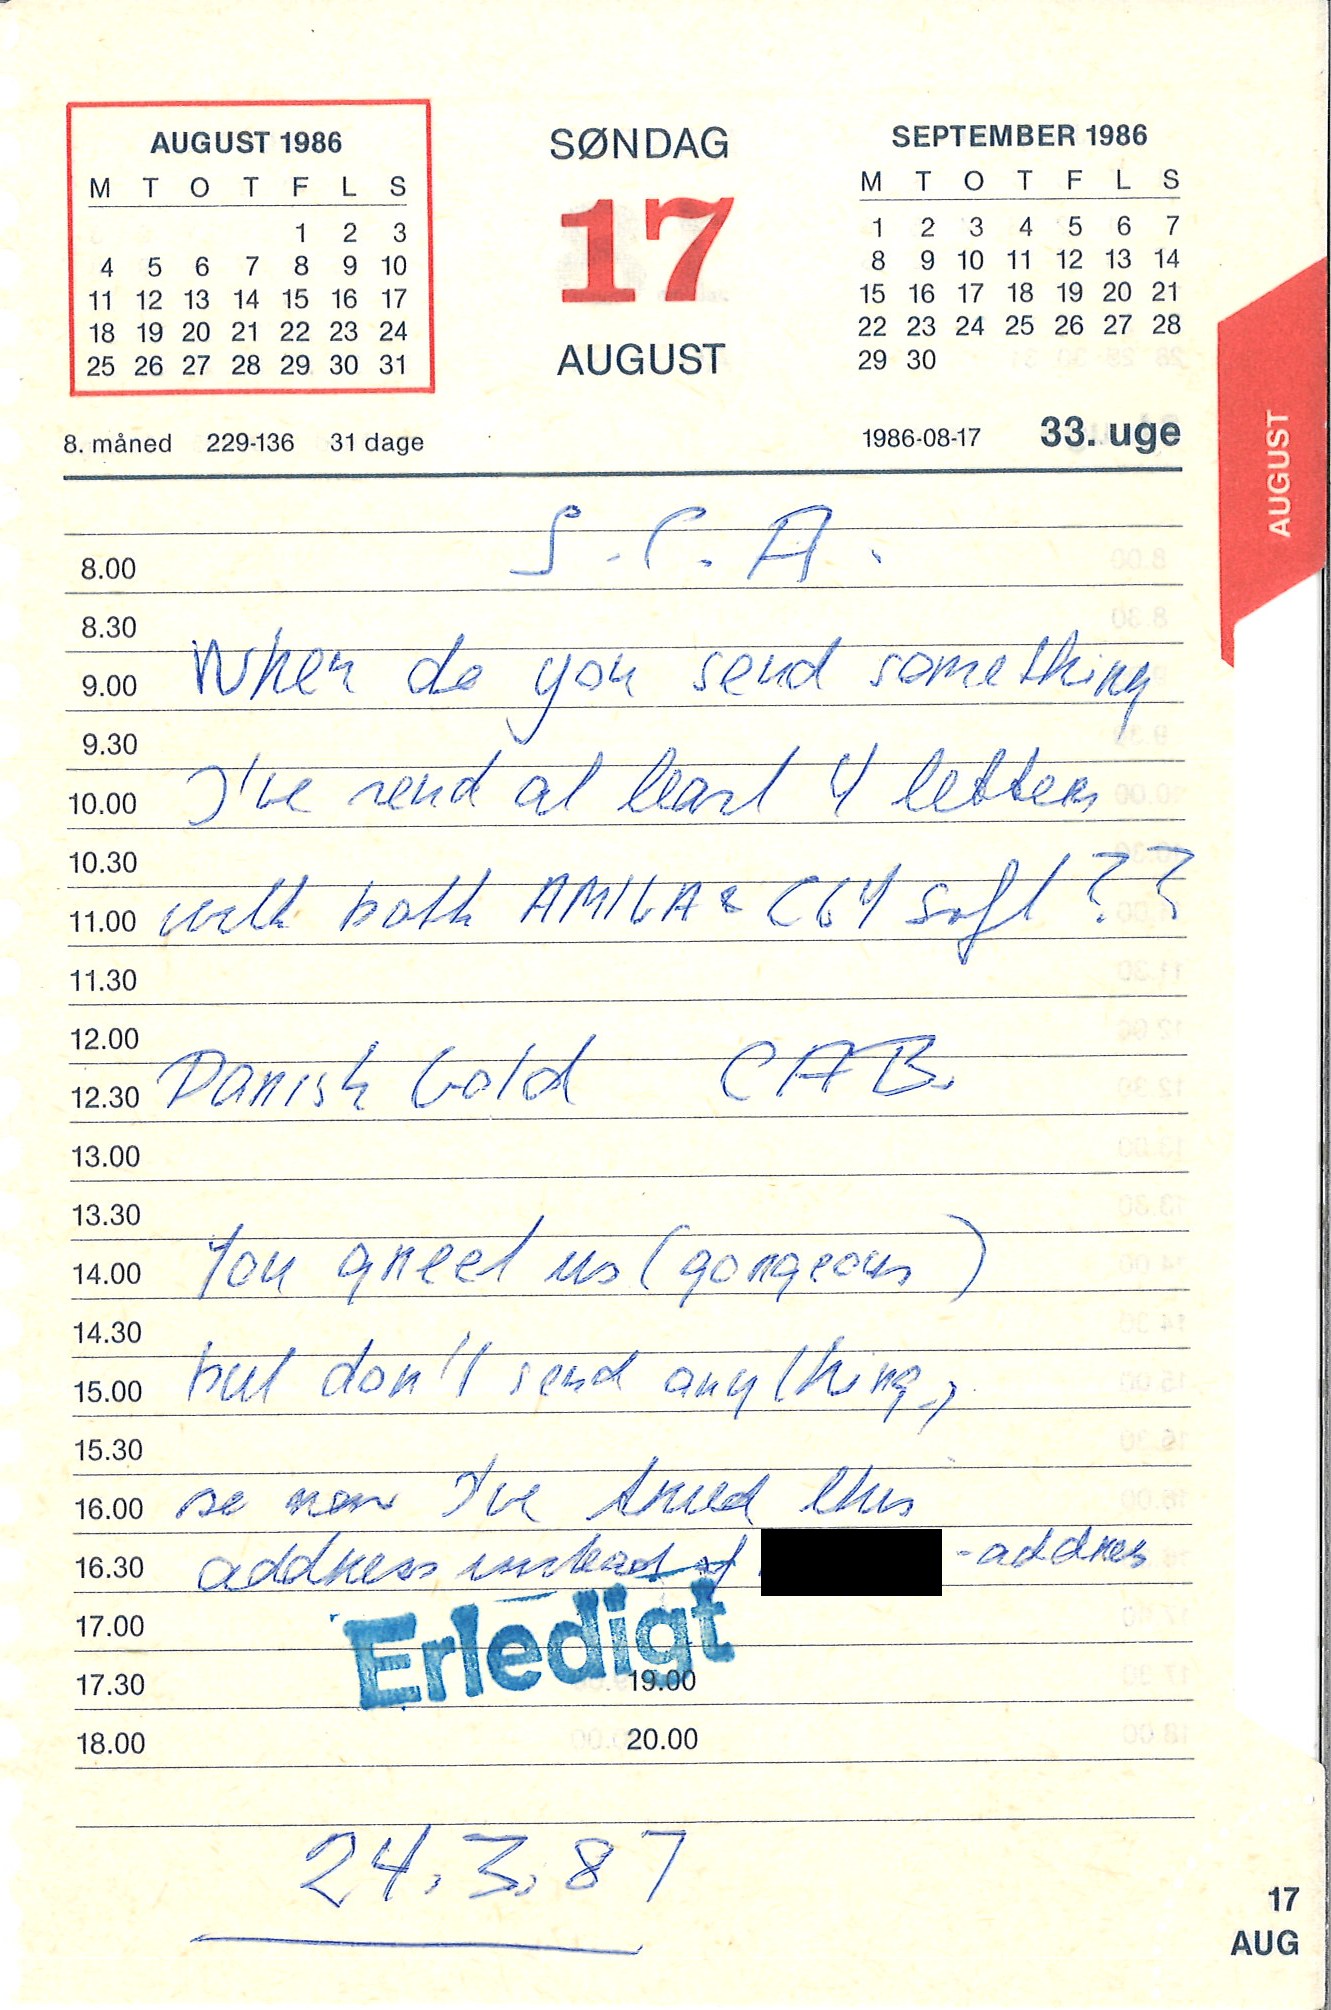 AUGUST 1986
M T O T F L S
1 2 3
4 5 6 7 8 9 10
11 12 13 14 15 16 17
18 19 20 21 22 23 24
25 26 27 28 29 30 31
8. måned 229-136 31 dage
SØNDAG
17
AUGUST
SEPTEMBER 1986
M T O T F L S
1 2 3 4 5 6 7
8 9 10 11 12 13 14
15 16 17 18 19 20 21
22 23 24 25 26 27 28
29 30
1986-08-17 33. uge
AUGUST
S.C.A.
8.00
8.30
9.00 When do you send something
9.30
10.00 I've send at least 4 letters
10.30
11.00 with both AMIGA & C64 soft ??
11.30
12.00
12.30 Danish Gold CAB.
13.00
13.30
14.00 You greed us (gorgeous)
14.30
15.00 but don't send anything,
15.30
16.00 so now I've tried this
16.30 address instead of -addres
17.00 Erledigt
17.30 19.00
18.00 20.00
24.3.87
17
AUG